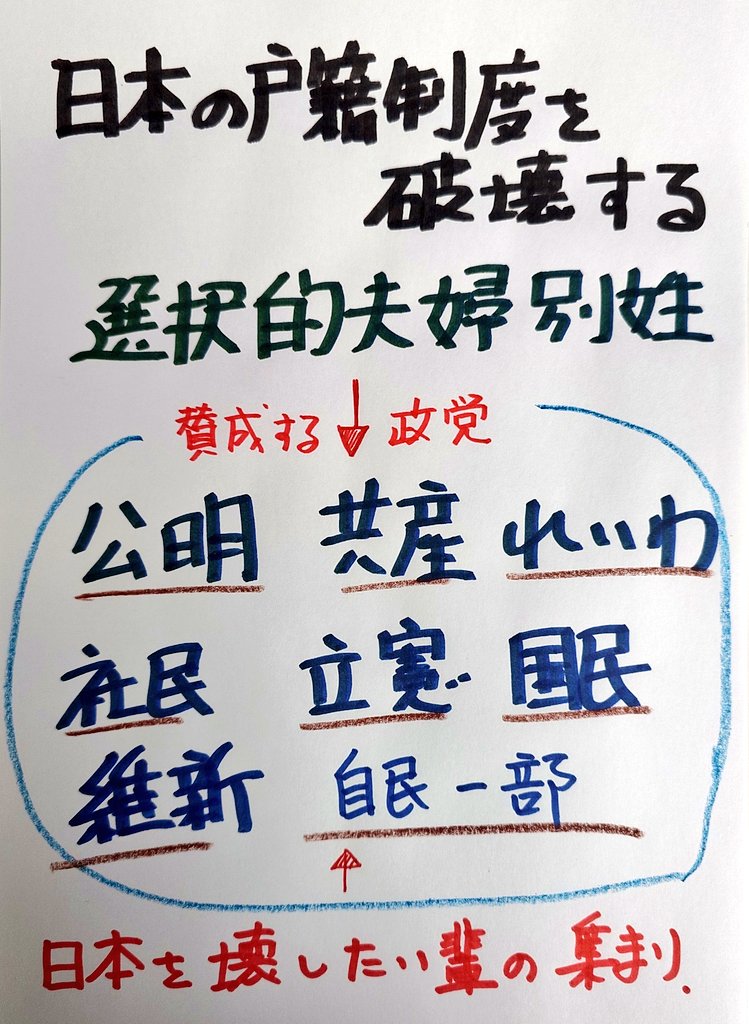 日本の戸籍制度を
破壊する
選択的夫婦別姓
賛成する 政党
公明 共産 れいわ
社民 立憲 国民
維新 自民一部
日本を壊したい輩の集まり.